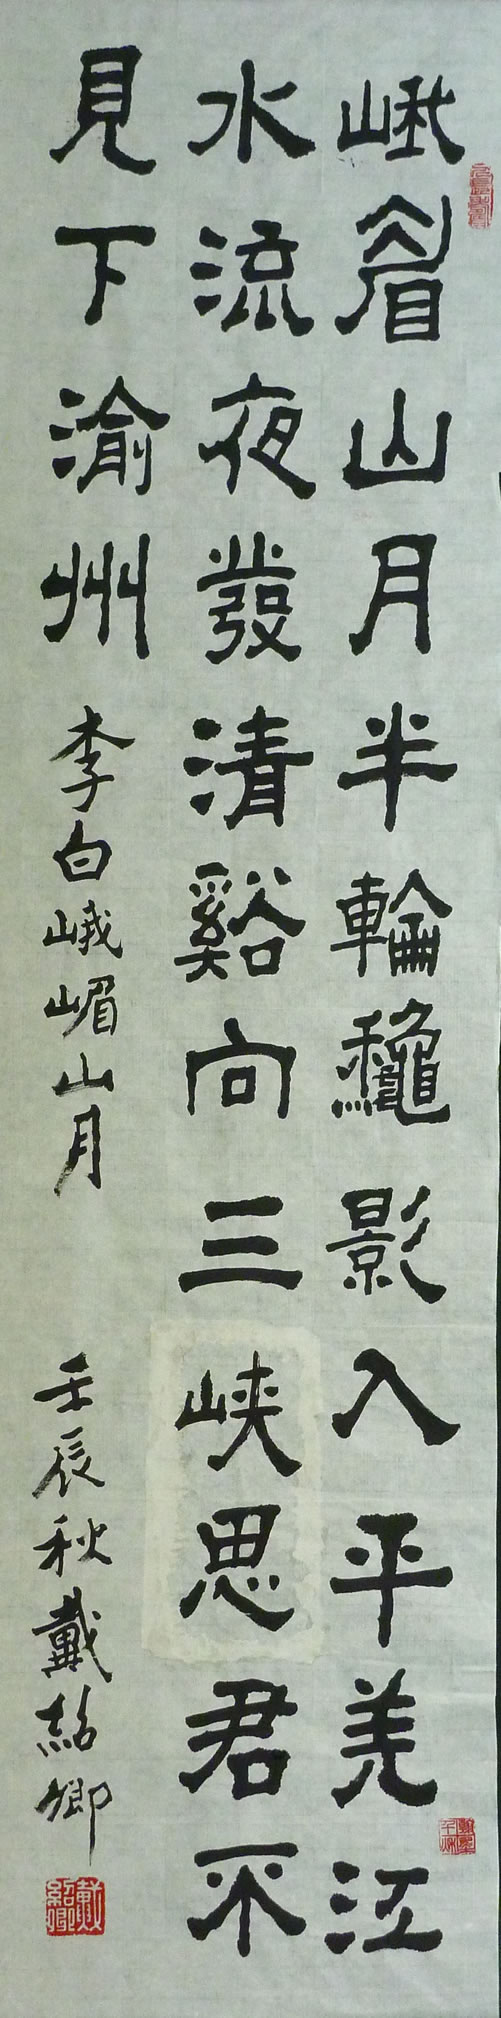 峨眉山月半輪龝影入平羌江
水流夜發清谿向三峽思君不
見下渝州
李白峨嵋山月
壬辰秋戴紹卿
戴紹卿